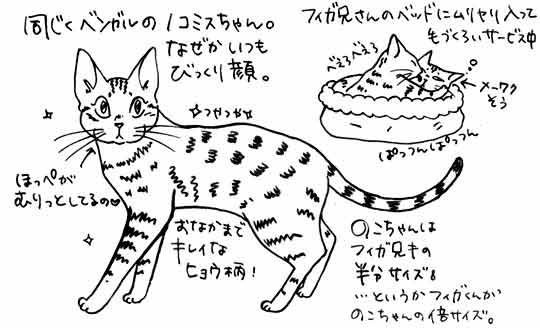 同じくベンガルのノコミスちゃん。
なぜかいつも
びっくり顔。
つやつやっ
ほっぺが
むりっとしてるの♡
おなかまで
キレイな
ヒョウ柄!
フィガ兄さんのベッドにムリヤリ入って
毛づくろいサービス中
べろべろ
メーワク
そう
ぱっつんぱっつん
のこちゃんは
フィガ兄キの
半分サイズ。
…というかフィガくんが
のこちゃんの倍サイズ。